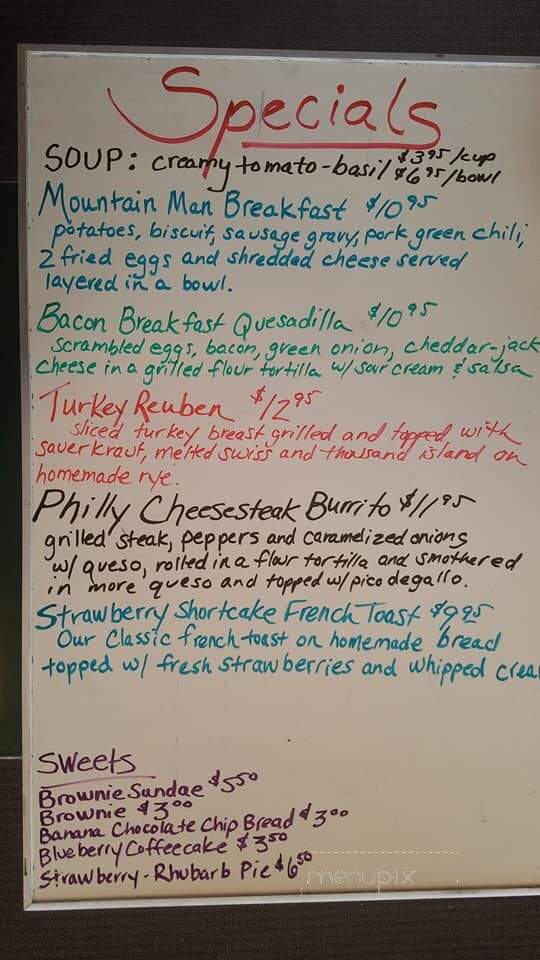 Specials
SOUP: creamy tomato-basil $3.95/cup
$6.95/bowl
Mountain Man Breakfast $10.95
potatoes, biscuit, sausage gravy, pork green chili,
2 fried eggs and shredded cheese served
layered in a bowl.
Bacon Breakfast Quesadilla $10.95
scrambled eggs, bacon, green onion, cheddar-jack
cheese in a grilled flour tortilla w/ sour cream & salsa
Turkey Reuben $12.95
sliced turkey breast grilled and topped with
sauerkraut, melted swiss and thousand island on
homemade rye.
Philly Cheesesteak Burrito $11.95
grilled steak, peppers and caramelized onions
w/ queso, rolled in a flour tortilla and smothered
in more queso and topped w/ pico de gallo.
Strawberry Shortcake French Toast $9.95
Our Classic french toast on homemade bread
topped w/ fresh strawberries and whipped crea
Sweets
Brownie Sundae $5.50
Brownie $3.00
Banana Chocolate Chip Bread $3.00
Blueberry Coffeecake $3.50
Strawberry-Rhubarb Pie $6.50
menupix